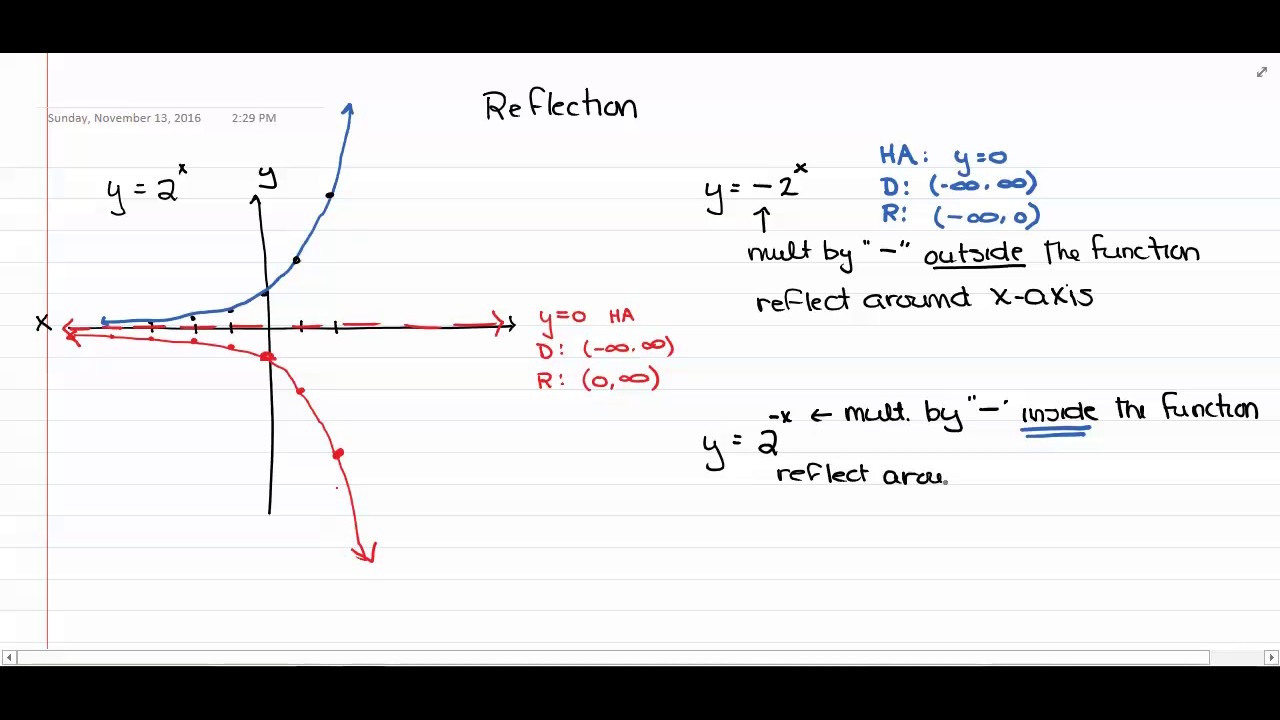 Reflection
Sunday, November 13, 2016 2:29 PM
y = 2^x
y
x
y=0 HA
D: (-∞,∞)
R: (0,∞)
y = -2^x
HA: y=0
D: (-∞,∞)
R: (-∞,0)
↑
mult by "-" outside the function
reflect around x-axis
y = 2^-x ← mult. by "-" inside the function
reflect arou